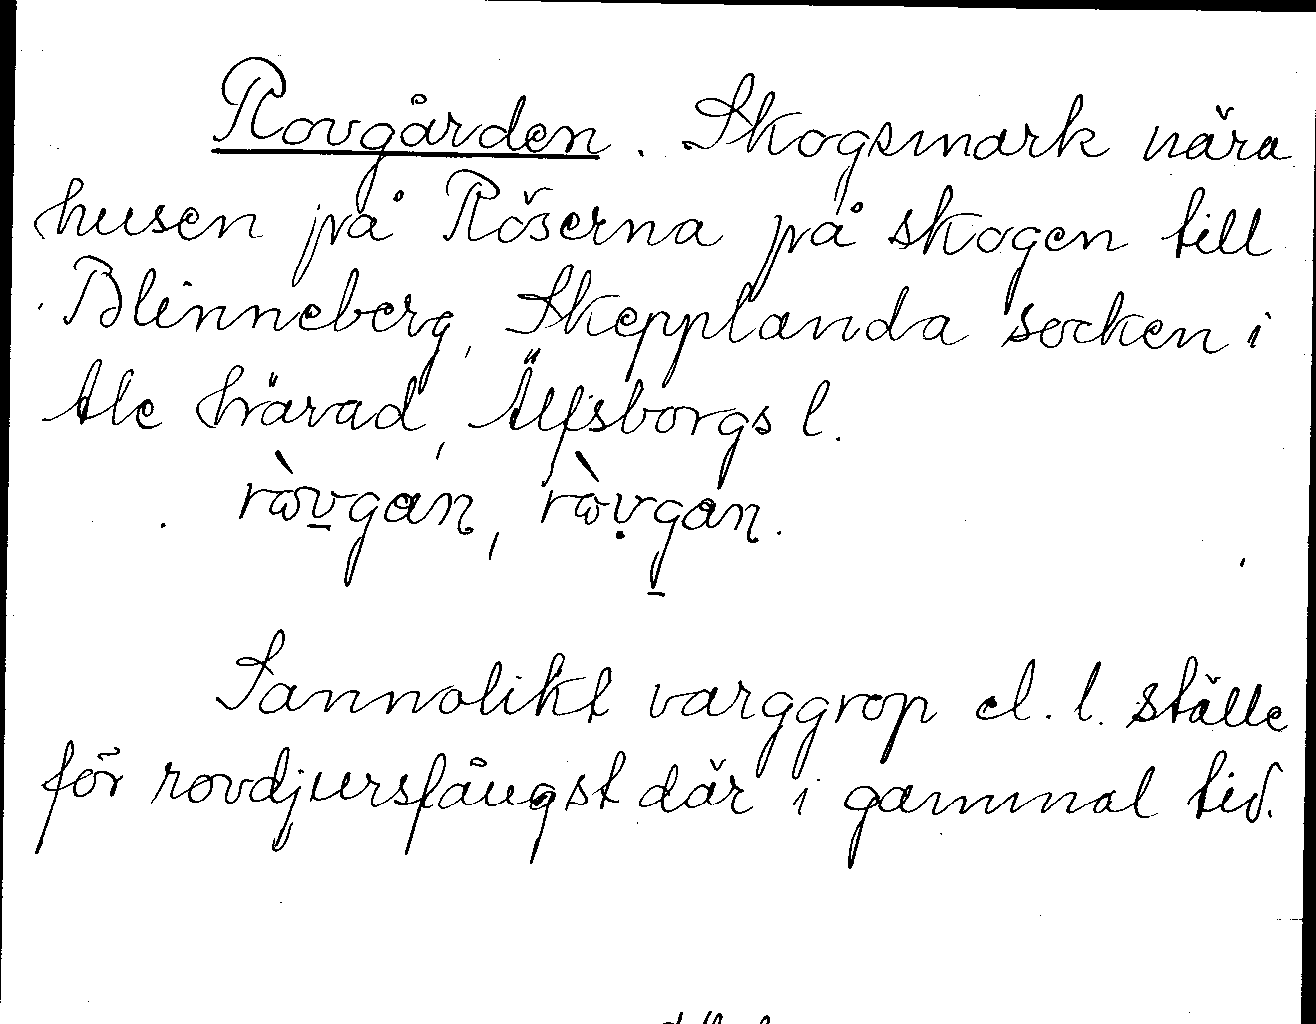 Rovgården. Skogsmark nära
husen på Röserna på skogen till
Blinneberg, Skepplanda socken i
Ale härad, Älfsborgs l.
ròvgan, ròvgan.
Sannolikt varggrop el. l. ställe
för rovdjursfångst där i gammal tid.